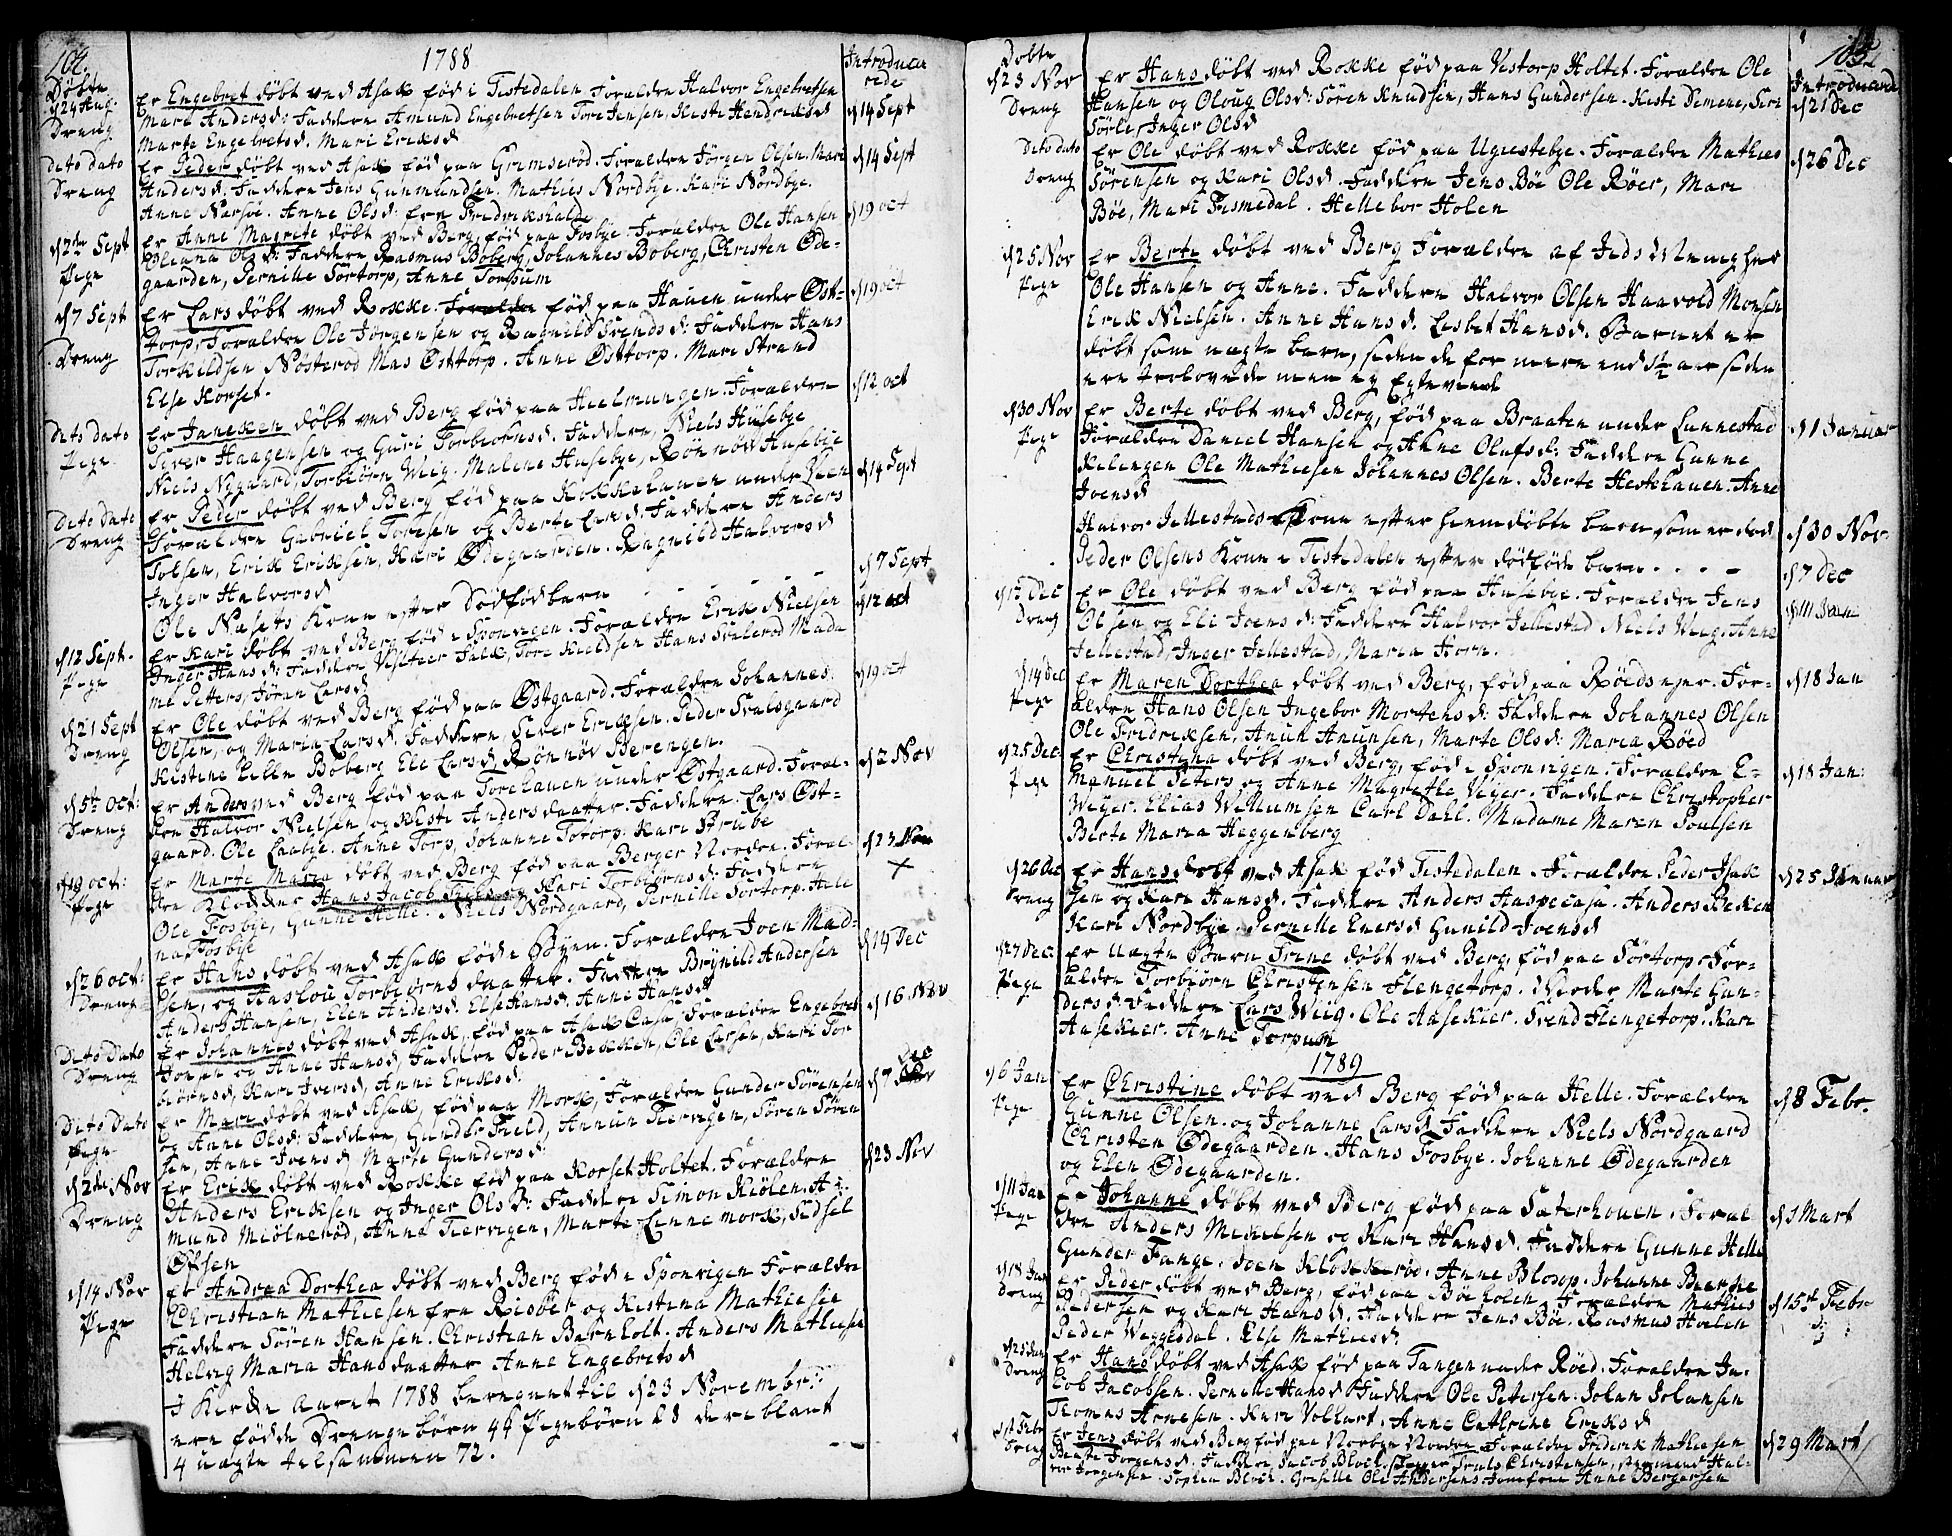 104.
1788
Introduce
rede
Döbte
d 24 Aug.
Dreng
er Engebret döbt ved Asak fød i Tistedalen Forældre Halvor Engebretsen
Mari Andersd: Faddere Amund Engebretsen Tore Jensen, Kisti Hendriksd
Marte Engebretsd. Mari Eriksd
d 14 Sept
Dito dato
Dreng
er Peder döbt ved Asak fød paa Grimserød. Forældre Jörgen Olsen. Mari
Andersd. Faddere Jens Gunmundsen. Mathies Nordbye. Kari Nordbye.
Anne Narsöe. Anne Olsd: fra Fridrikshald
d 14 Sept
d 2den Sept
Pige
er Anne Magrete döbt ved Berg, fød paa Fosbye. Forældre Ole Hansen
Oleana Olsd: Faddere Rasmus Boberg, Johannes Boberg, Christen Öde-
gaarden, Pernille Sörtorp, Anne Torpum
d 19 oct
d 7 Sept
Dreng
er Lars döbt ved Rokke. fød paa Hauen under Öst-
torp, Forældre Ole Jörgensen og Ragnild Svendsd: Faddere Hans
Torkildsen Nösterød Mas Östtorp. Anne Östtorp. Mari Strand
Else Korset.
d 19 oct
Dito dato
Pige
er Janeken döbt ved Berg fød paa Hielmungen. Forældre
Siver Haagensen og Guri Torbiörnsd. Faddere, Niels Husebye
Niels Nygaard, Torbiörn Wiig. Malene Husebye, Rönnöv Husebye
d 12 oct
Dito Dato
Dreng
er Peder döbt ved Berg fød paa Kokkehauen under Leen
Forældre Gabriel Toresen og Berte Larsd. Faddere Anders
Tolsen, Erik Eriksen, Kari Ödegaarden. Ragnild Halvorsd
Inger Halvorsd
d 14 Sept
Ole Næsets Kone efter Dödfød barn
d 7 Sept
d 12 Sept.
Pige
er Kari döbt ved Berg fød i Sponvigen. Forældre Erik Nielsen
Inger Hansd: Faddere Visiteer Falk, Tore Kieldsen Hans Svalerød Mada
me Petters, Jöran Larsd
d 12 oct
d 21 Sept
Dreng
er Ole döbt ved Berg fød paa Östgaard. Forældre Johannes
Olsen, og Maria Larsd. Faddere, Siver Eriksen. Peder Svalsgaard
Kistine Lille Boberg Ele Larsd Rönnöv Berengen.
d 19 oct
d 5te Oct:
Dreng
er Anders ved Berg fød paa Torehauen under Östgaard. Foræl-
dre Halvor Nielsen og Kisti Andersdaatter. Faddere. Lars Öst-
gaard. Ole Laabye. Anne Torp, Johanne Torp. Kari Strube
d 2 Nov
d 19 oct:
Pige
er Marte Maria döbt ved Berg fød paa Berger Nordre. Foræl-
dre Hans Jacob og Kari Torbiörnsd: Faddere
Ole Fosbye, Gunne Helle. Niels Nordgaard, Pernille Sörtorp. Hele
na Fosbye
d 23 Nov
X
d 26 oct:
Dreng
er Hans döbt ved Asak fød i Byen. Forældre Joen Mad-
sen, og Aaslou Torbiörnsdaatter. Faddere Brynild Andersen
Anders Hansen, Elen Andersd. Else Hansd. Anne Hansd
d 14 Dec
Dito Dato
Dreng
er Johannes döbt ved Asak, fød paa Asak Casa, Forældre Engebret
Jonsen og Anne Hansd, Faddere Peder Bekken, Ole Larsen, Kari Tor
biörnsd, Kari Iversd, Anne Eriksd.
d 16 Nov
Dito Dato
Pige
er Mari döbt ved Asak, fød paa Mork, Forældre Gunder Sörensen
og Anne Olsd: Faddere, Gunder Field, Annun Tiervigen, Sören Sören
sen, Anne Joensd Marte Gundersd:
d 7 Dec
d 2den Nov
Dreng
er Erik döbt ved Rokke fød paa Korset Holtet. Forældre
Anders Eriksen og Inger Olsd: Faddere Simon Kiölen. A-
mund Miölnerød, Anne Tiervigen, Marte Linnemork, Sidsel
Öfsen
d 23 Nov
d 14 Nov
Pige
er Andrea Dorthea döbt ved Berg fød i Sponvigen Forældre
Christian Mathiesen fra Risöer og Kistina Mathiesie
Faddere Sören Hansen. Christian Barnholt. Anders Mathiesen
Helvig Maria Hansdaatter Anne Engebretsd
I Kirke Aaret 1788 beregnet til d 23 Novembr:
ere fødde Drengebörn 44 Pigebörn 28 deriblant
4 uægte tilsammen 72.
105.
Döbte
Introducered
d 23 Nov
Dreng
er Hans döbt ved Rokke fød paa Vestorp Holtet. Forældre Ole
Hansen og Oloug Olsd: Sören Knudsen, Hans Gundersen. Kisti Demene, Siri
Sörle, Inger Olsd
d 21 Dec
Dito dato
Dreng
er Ole döbt ved Rokke fød paa Ugestebye. Forældre Mathies
Sörensen og Kari Olsd. Faddere Jens Böe Ole Röer, Mari
Böe, Mari Fismedal. Hellebor Holen
d 26 Dec
d 25 Nov
Pige
er Berte döbt ved Berg Forældre af Jids Menigheed
Ole Hansen og Anne. Faddere Halvor Olsen Haavold Monsen
Erik Nielsen. Anne Hansd. Lisbet Hansd. Barnet er
döbt som uægte barn, siden de for mere end 1½ aar siden
ere trolovede men ey Egteviede
d 30 Nov
Pige
er Berte döbt ved Berg, fød paa Braaten under Lunnestad
Forældre Daniel Hansen og Anne Olufsd: Faddere Gunne
Kilengen Ole Mathiesen Johannes Olsen. Berte Hestehauen. Anne
Joensd
d 1 Januar
Halvor Jellestads Kone efter hiemdöbte barn som er död
d 30 Nov.
Peder Olsens Kone i Tistedalen efter dödföde barn . . . -
d 7 Dec
d 12 Dec
Dreng
er Ole döbt ved Berg fød paa Husebye. Forældre Jens
Olsen og Eli Joensd: Faddere Halvor Jellestad Niels Wiig. Anne
Jellestad, Inger Jellestad, Maria Horn.
d 11 Jan
d 14 Dec
Pige
er Maren Dorthea döbt ved Berg, fød paa Röeds ejer. For-
ældre Hans Olsen Ingebor Mortensd: Faddere Johannes Olsen
Ole Fridriksen, Anun Anunsen, Marte Olsd: Maria Röed
d 18 Jan
d 25 Dec:
Pige
er Christina döbt ved Berg, fød i Sponvigen. Forældre E-
manuel Peters og Anne Magrethe Veyer. Faddere Christopher
Weyer. Elias Willumsen Carl Dahl. Madame Maren Poulsen
Birte Maria Heggenberg
d 18 Jan:
d 26 Dec
Dreng
er Hans döbt ved Asak fød Tistedalen. Forældre Peder Isak
sen og Kari Hansd. Faddere Anders Aaspecasa. Anders Bekken
Kari Nordbye. Pernille Enersd Gunild Joensd
d 25 Januar
d 27 Dec.
Pige
er Uægte Barn Trine döbt ved Berg, fød paa Sörtorp For-
ældre Torbiörn Christensen Flengetorp. Moder Marte Gun-
dersd Faddere Lars Wiig. Ole Aasekier. Svend Flengetorp. Kari
Aasekier. Anne Torpum
1789
d 6 Jan
Pige
er Christine döbt ved Berg fød paa Helle. Forældre
Gunne Olsen. og Johanne Larsd Faddere Niels Nordgaard
Christen Ödegaarden. Hans Fosbye. Johanne Ödegaarden
og Elen Ödegaarden.
d 8 Febr.
d 11 Jan
Pige
er Johanne döbt ved Berg fød paa Sæterhouen. Foræl
dre Anders Mikelsen og Kari Hansd. Faddere Gunne Helle
Gunder Fange. Joen Kloskerød. Anne Blosop. Johanne Bierne
d 1 Mart
d 18 Jan
Dreng
er Peder döbt ved Berg, fød paa Böe holen. Forældre Mathies
Pedersen og Kari Hansd. Faddere Jens Böe. Rasmus Holen
Peder Weggesdal. Else Mathiesd.
d 15de Febr
d 25 Jan
Dreng
er Hans döbt ved Asak fød paa Tangen under Röed. Forældre Ja-
cob Jacobsen. Pernille Hansd Faddere Ole Petersen. Johan Johansen
Thomas Arnesen. Kari Vollart. Anne Cathrine Eriksd
d 1st Febr
Dreng
er Jens döbt ved Berg fød paa Norbye Nordre Forældre Friderik Mathiesen
Beate Jörgensd. Faddere Jacob Bloch. Truls Christensen, Hal-
vor Jörgensen. Sophia Bloch. Ole Andersens Jomfrue Anne Bergersen
d 29 Mart